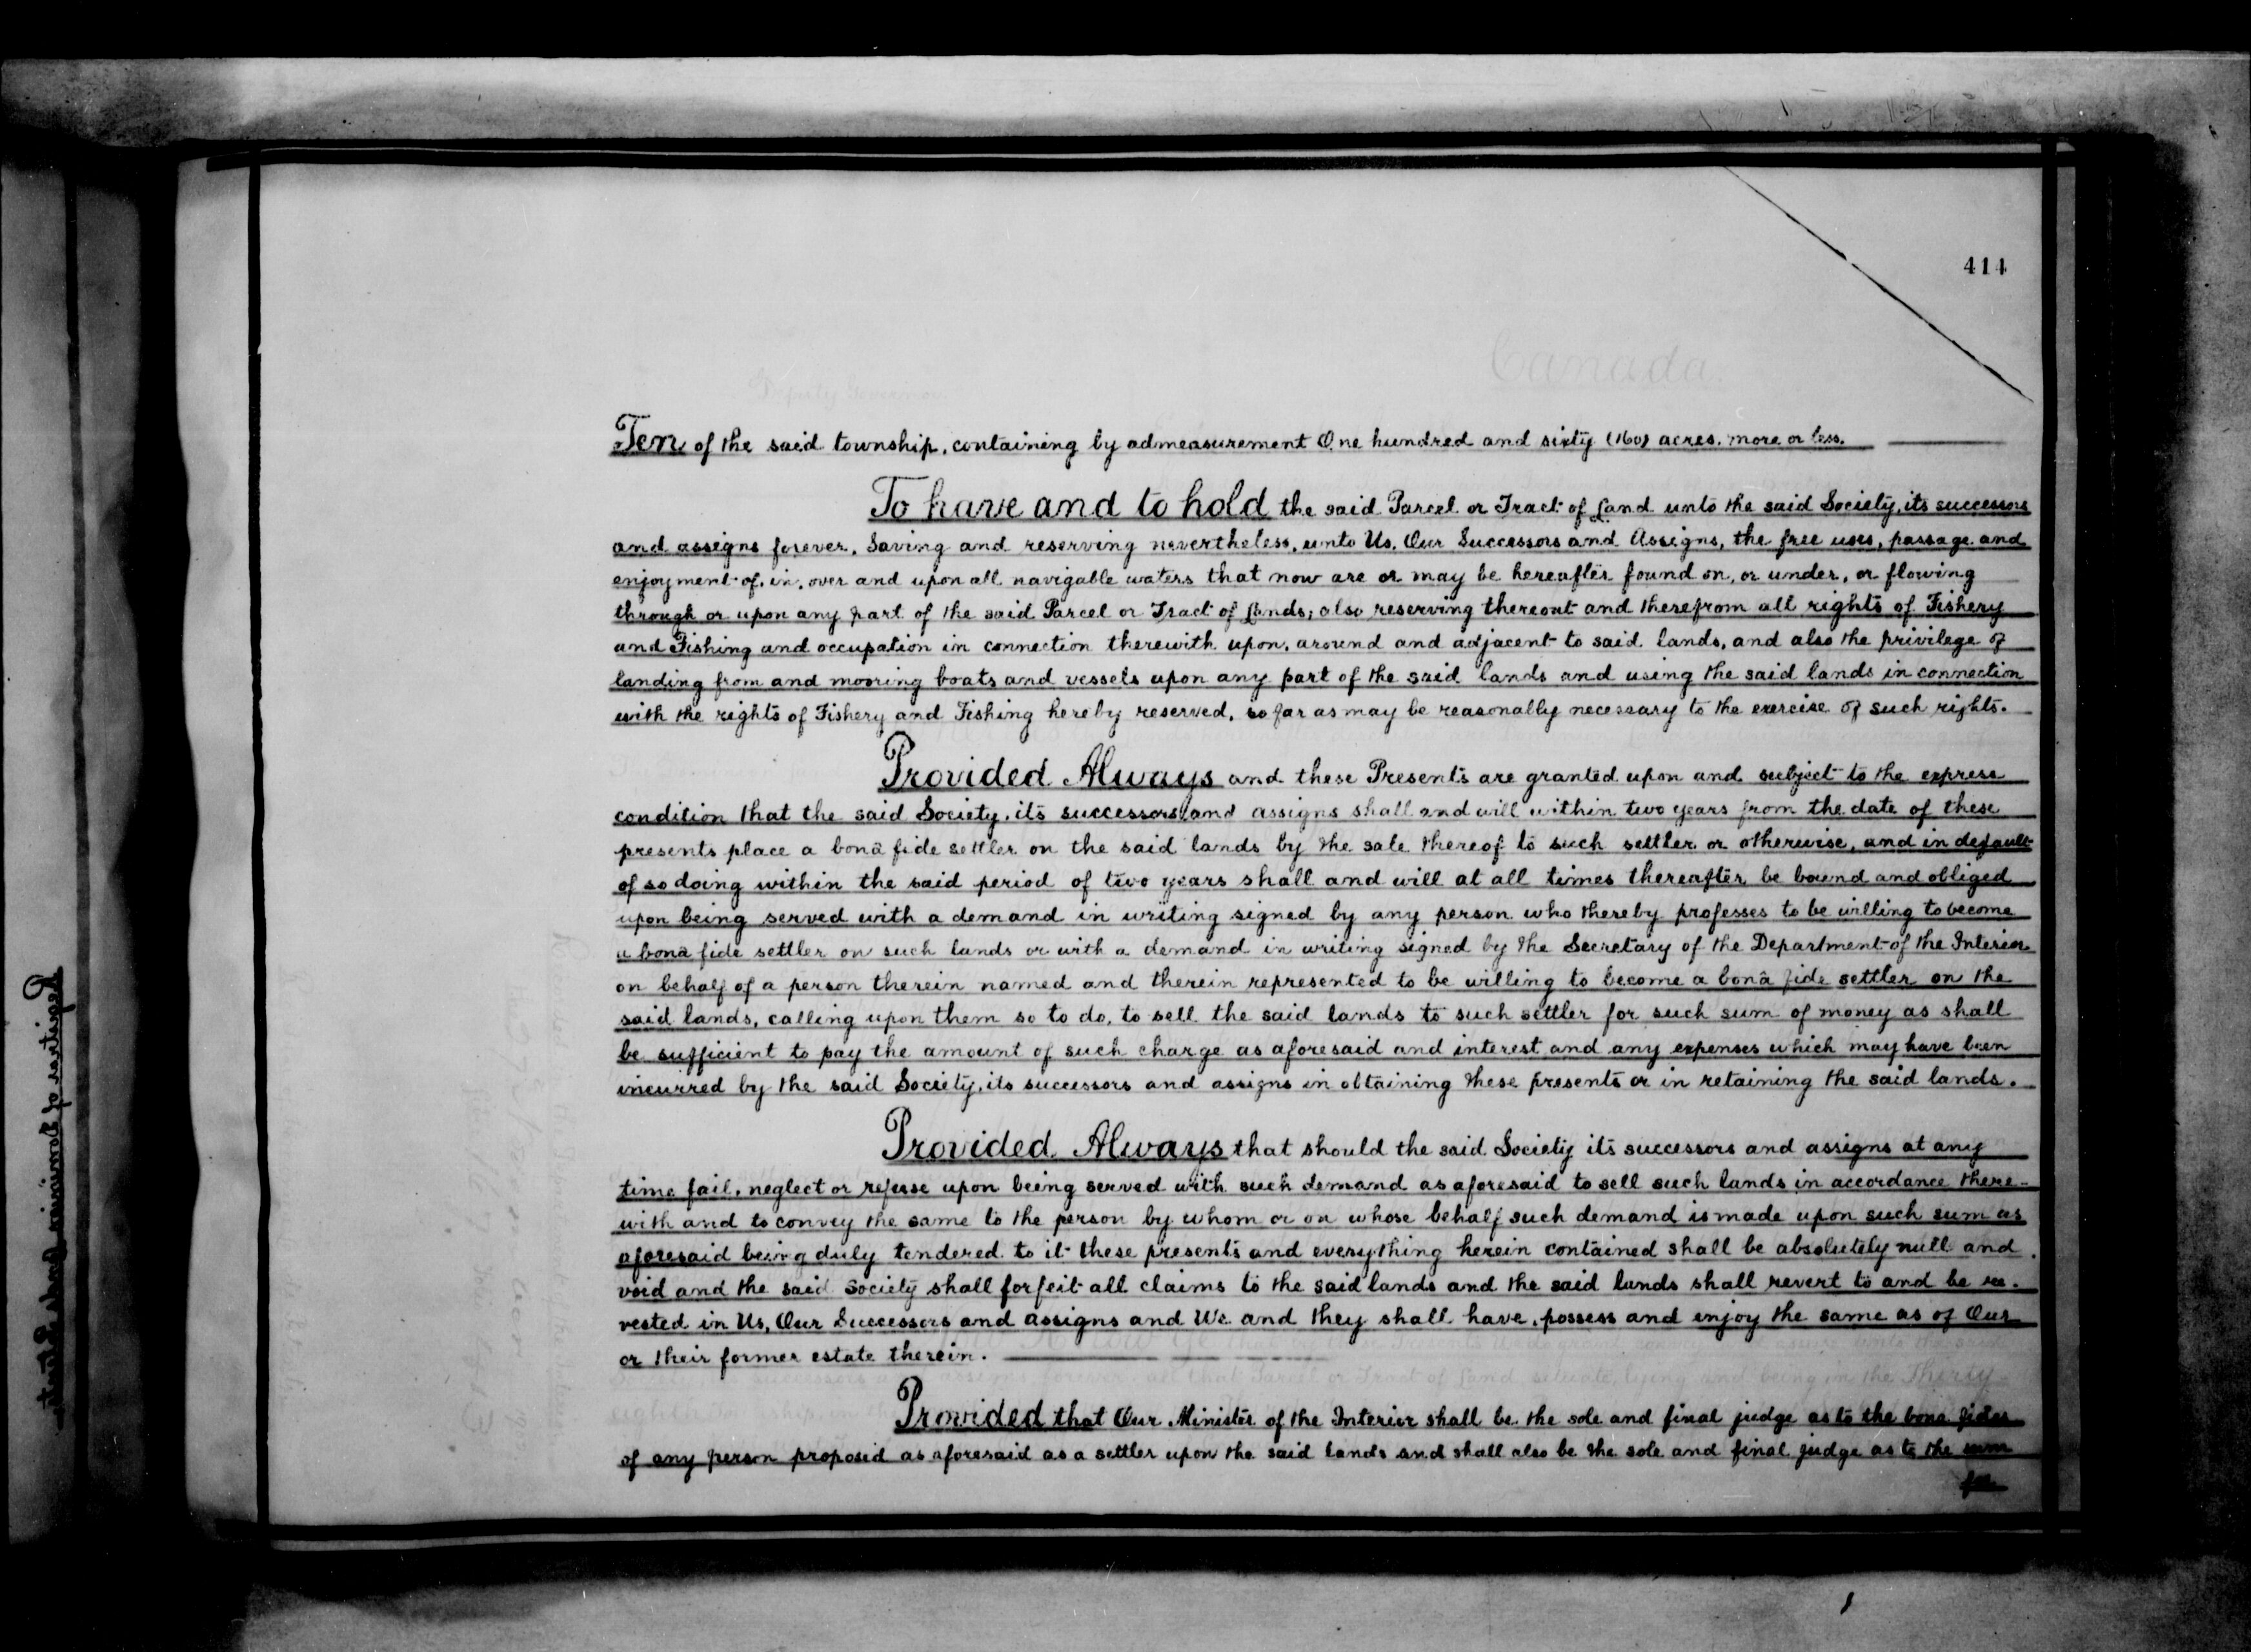 414
Canada
Deputy Governor
Ten of the said township, containing by admeasurement One hundred and sixty (160) acres. more or less.
To have and to hold the said Parcel or Tract of Land unto the said Society, its successors
and assigns forever, Saving and reserving nevertheless, unto Us, Our Successors and Assigns, the free uses, passage and
enjoyment of, in, over and upon all navigable waters that now are or may be hereafter found on, or under, or flowing
through or upon any part of the said Parcel or Tract of Lands; also reserving thereout and therefrom all rights of Fishery
and Fishing and occupation in connection therewith upon, around and adjacent to said lands, and also the privilege of
landing from and mooring boats and vessels upon any part of the said lands and using the said lands in connection
with the rights of Fishery and Fishing hereby reserved, so far as may be reasonally necessary to the exercise of such rights.
Provided Always and these Presents are granted upon and subject to the express
condition that the said Society, its successors and assigns shall and will within two years from the date of these
presents place a bonâ fide settler on the said lands by the sale thereof to such settler or otherwise, and in default
of so doing within the said period of two years shall and will at all times thereafter be bound and obliged
upon being served with a demand in writing signed by any person who thereby professes to be willing to become
a bonâ fide settler on such lands or with a demand in writing signed by the Secretary of the Department of the Interior
on behalf of a person therein named and therein represented to be willing to become a bonâ fide settler on the
said lands, calling upon them so to do, to sell the said lands to such settler for such sum of money as shall
be sufficient to pay the amount of such charge as aforesaid and interest and any expenses which may have been
incurred by the said Society, its successors and assigns in obtaining these presents or in retaining the said lands.
Provided Always that should the said Society its successors and assigns at any
time fail, neglect or refuse upon being served with such demand as aforesaid to sell such lands in accordance there-
with and to convey the same to the person by whom or on whose behalf such demand is made upon such sum as
aforesaid being duly tendered to it these presents and everything herein contained shall be absolutely null and
void and the said Society shall forfeit all claims to the said lands and the said lands shall revert to and be re-
vested in Us, Our Successors and assigns and We and they shall have, possess and enjoy the same as of Our
or their former estate therein.
Provided that Our Minister of the Interior shall be the sole and final judge as to the bona fides
of any person proposed as aforesaid as a settler upon the said lands and shall also be the sole and final judge as to the sum
for
Register of Dominion Lands Grants